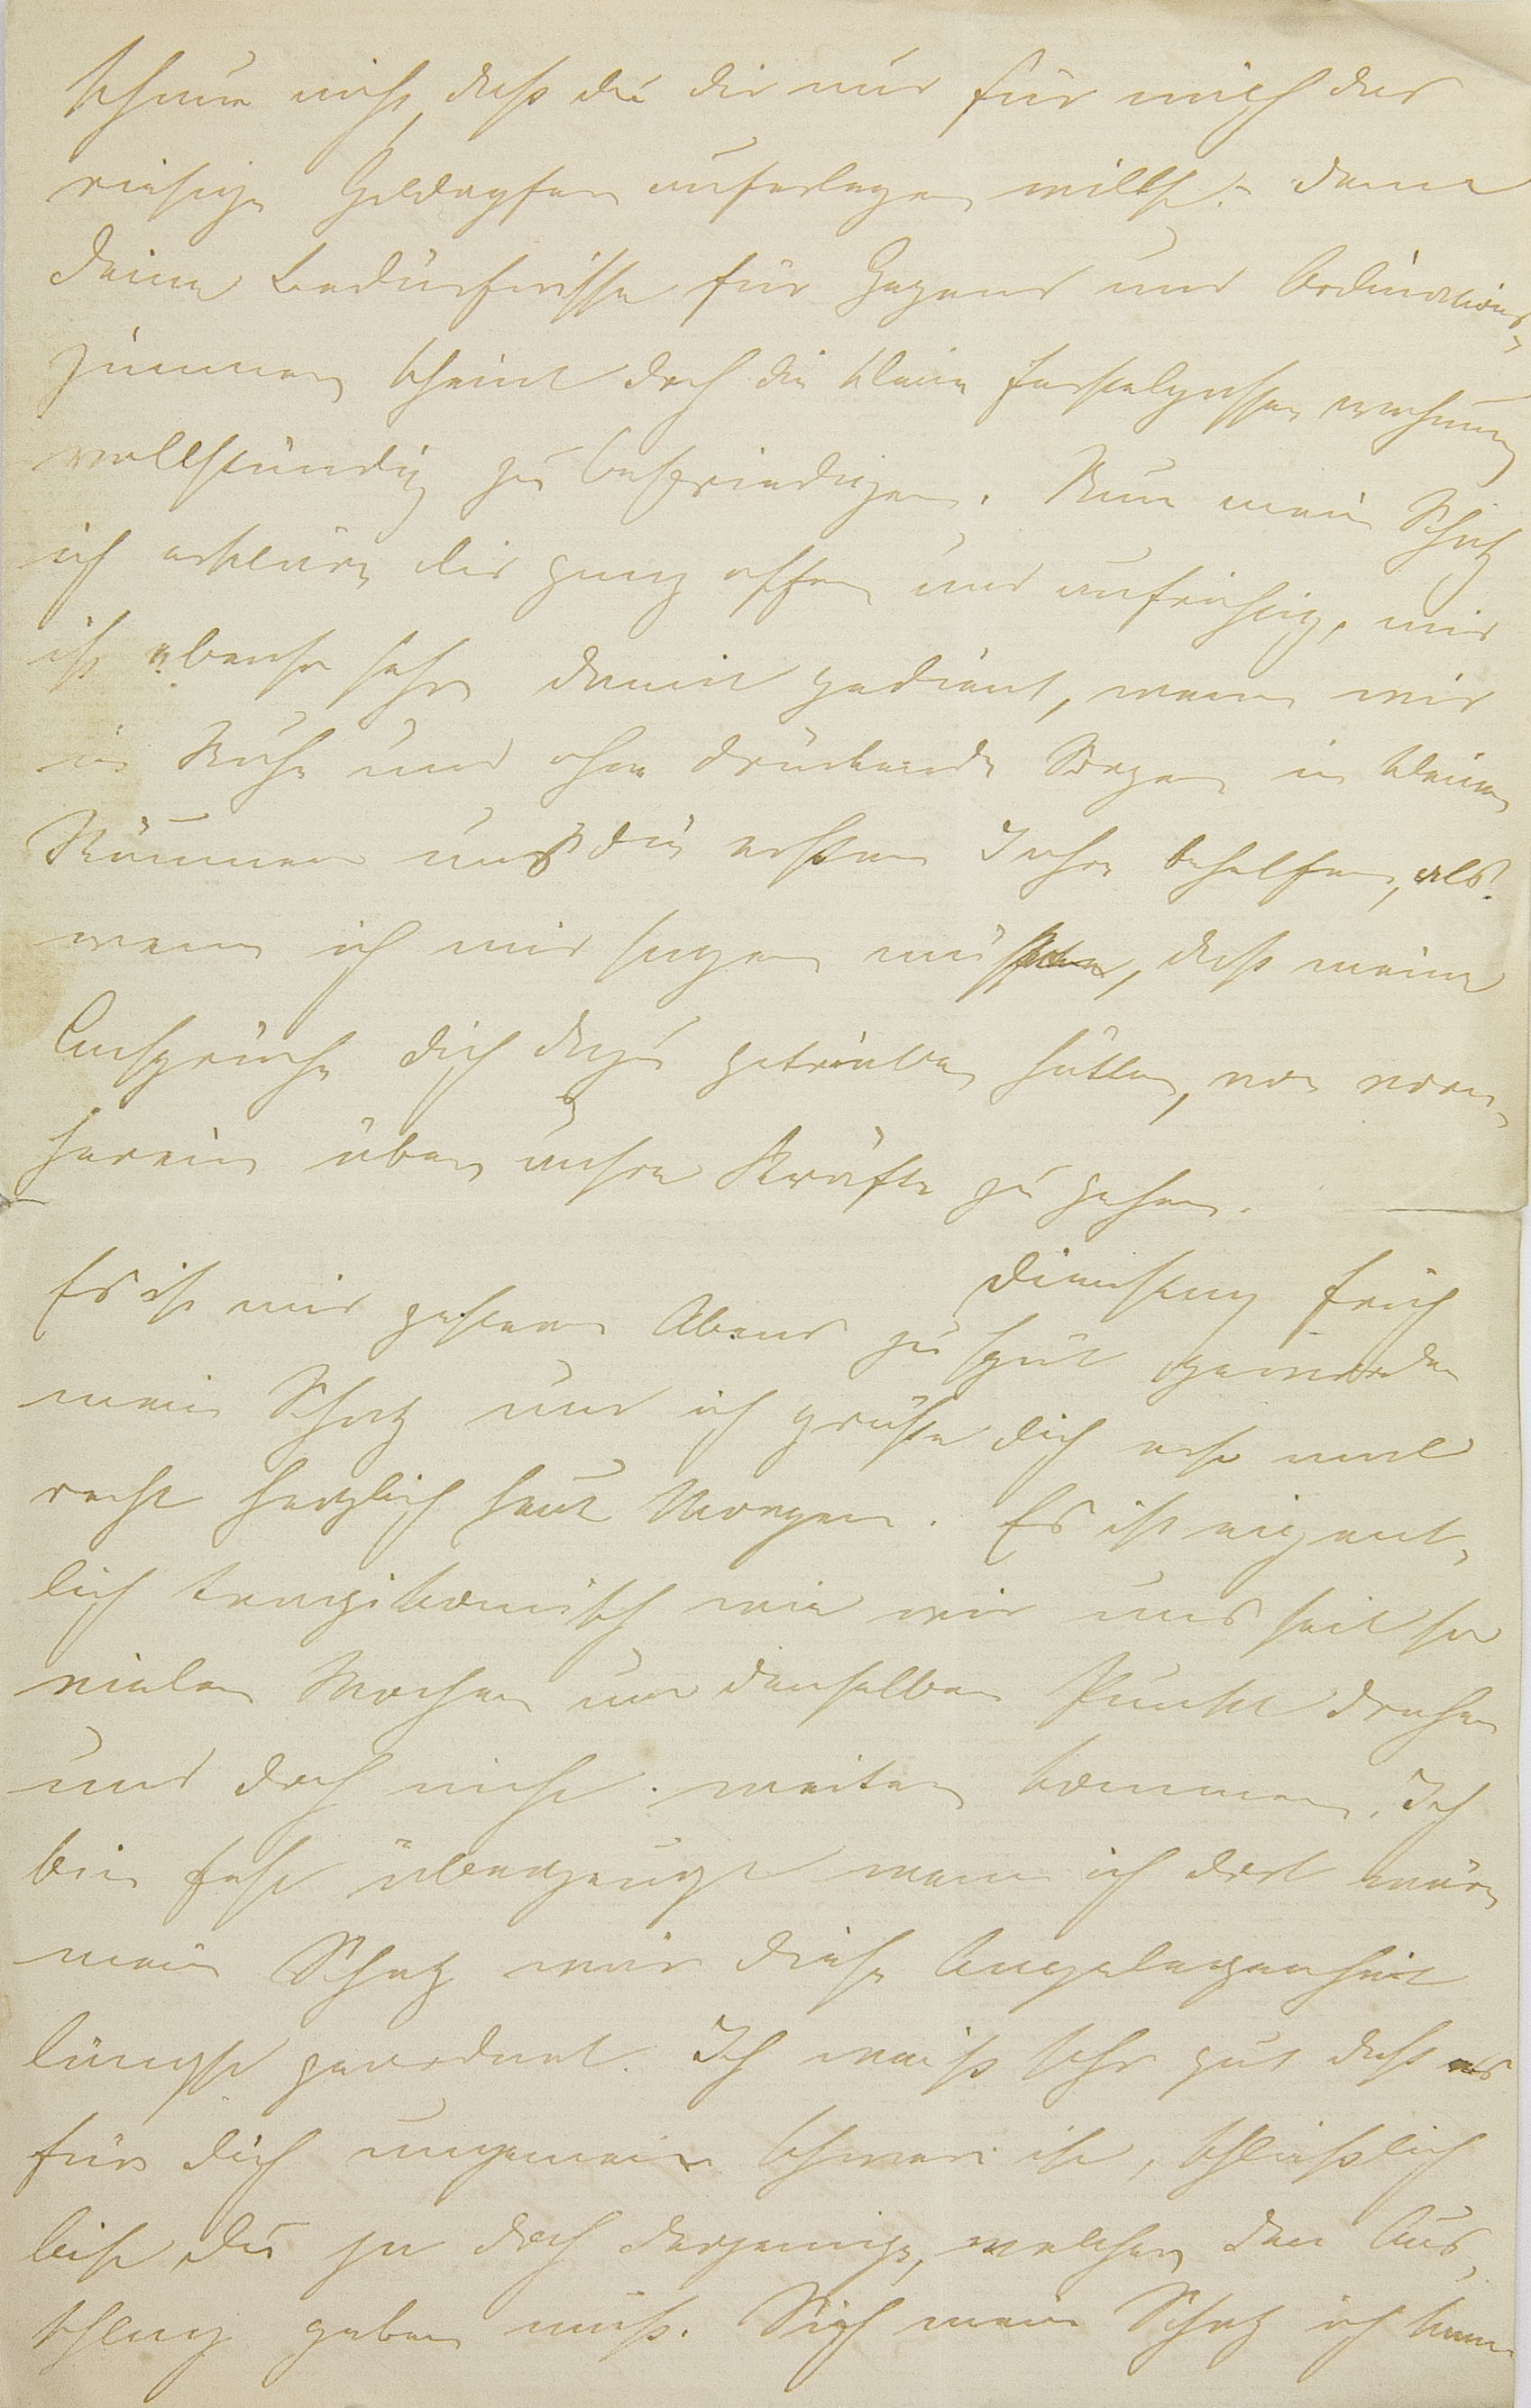 scheue nicht, daß du dir nur für mich das
riesige Geldopfer auferlegen willst. denn
deine Bedürfnisse für Gegend und Ordinations-
zimmer scheint doch die kleine Ferstelgassen wohnung
vollständig zu befriedigen. Nun mein Schatz
ich erkläre dir ganz offen und aufrichtig, mir
ist ebenso sehr damit gedient, wenn wir
in Ruhe und ohne drückende Sorgen in kleinen
Räumen uns die ersten Jahre behelfen, als
wenn ich mir sagen müßte, daß meine
Ansprüche dich dazu getrieben hätten, von vorn-
herein über unsre Kräfte zu gehen.
Dienstag früh
Es ist mir gestern Abend zu spät geworden
mein Schatz und ich grüße dich erst mal
recht herzlich heut Morgen. Es ist eigent-
lich tragikomisch wie wir uns seit so
vielen Wochen um denselben Punkt drehen
und doch nicht weiter kommen. Ich
bin fest überzeugt wenn ich dort wäre
mein Schatz wär diese Angelegenheit
längst geordnet. Ich weiß sehr gut daß es
für dich ungemein schwer ist, schließlich
bist du ja doch derjenige, welcher den Aus-
schlag geben muß. Sieh mein Schatz ich kann